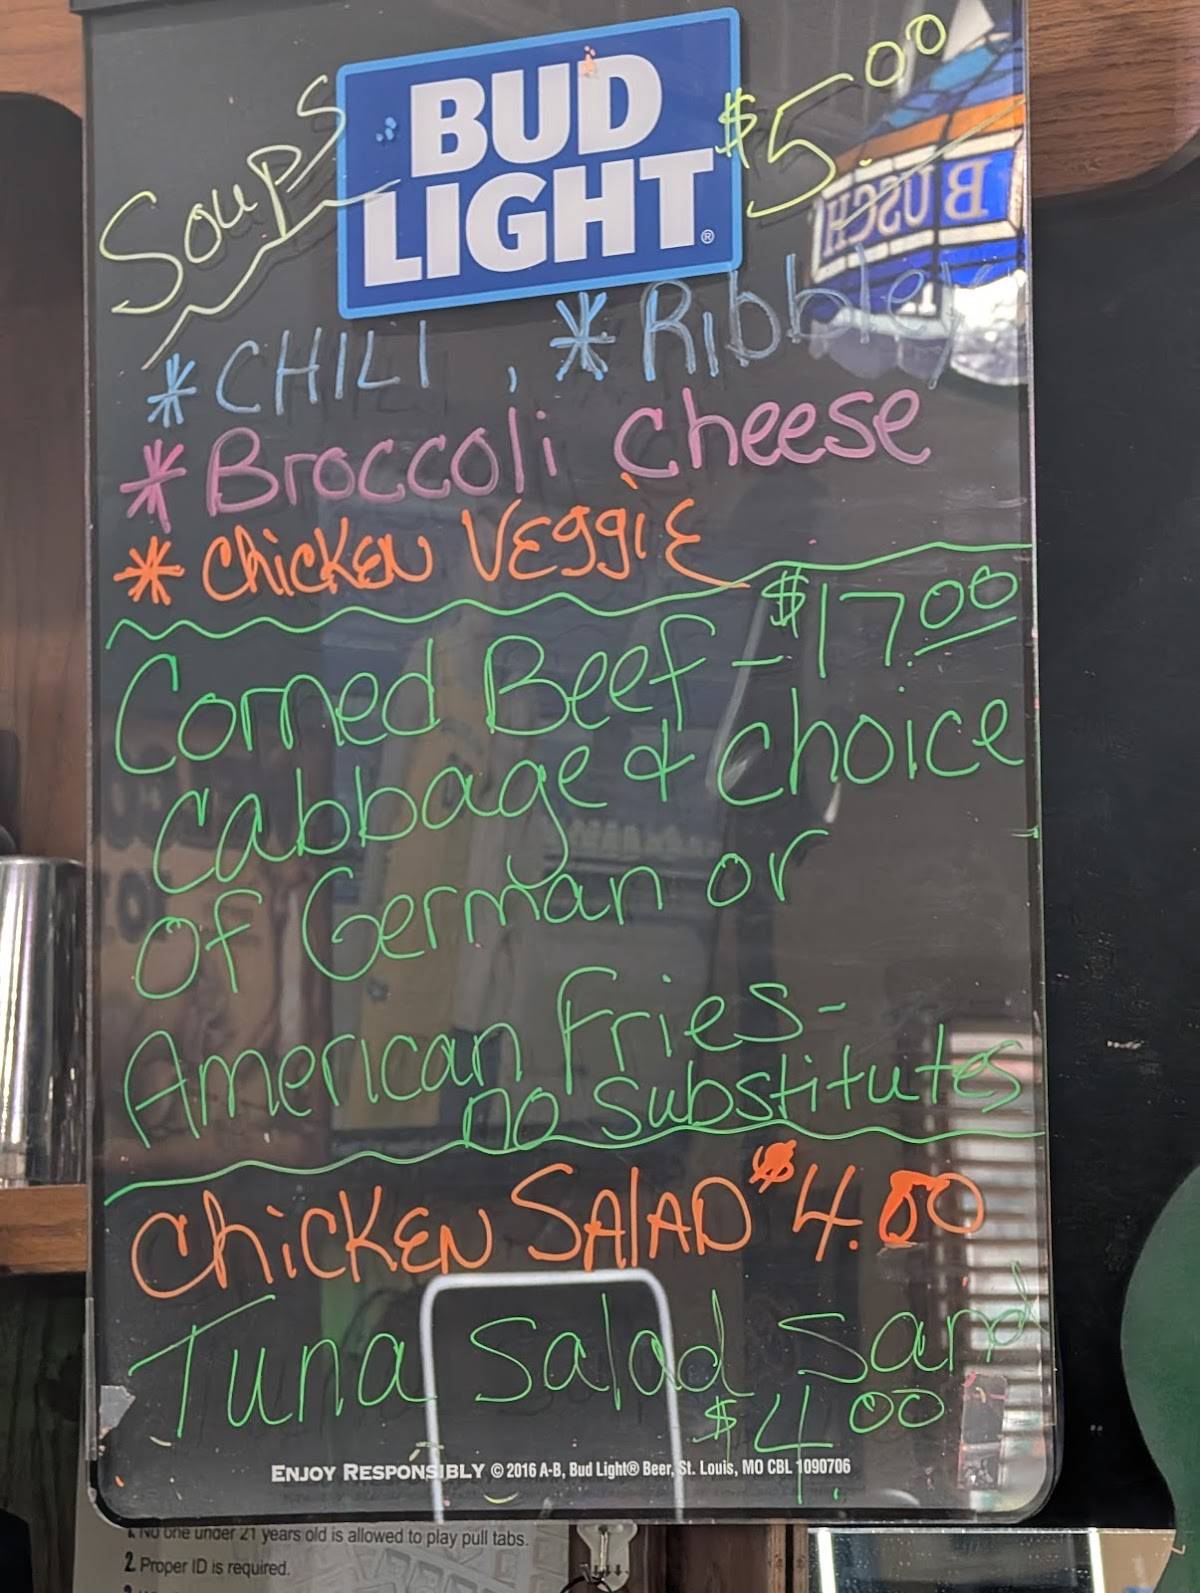 Soups BUD LIGHT® $5.00
BUSCH
* CHILI , * Ribbley
* Broccoli Cheese
* Chicken Veggie
Corned Beef - $17.00
Cabbage & choice
of German or
American Fries-
no substitutes
Chicken Salad $4.00
Tuna Salad Sand
$4.00
ENJOY RESPONSIBLY © 2016 A-B, Bud Light® Beer, St. Louis, MO CBL 1090706
1. No one under 21 years old is allowed to play pull tabs.
2. Proper ID is required.